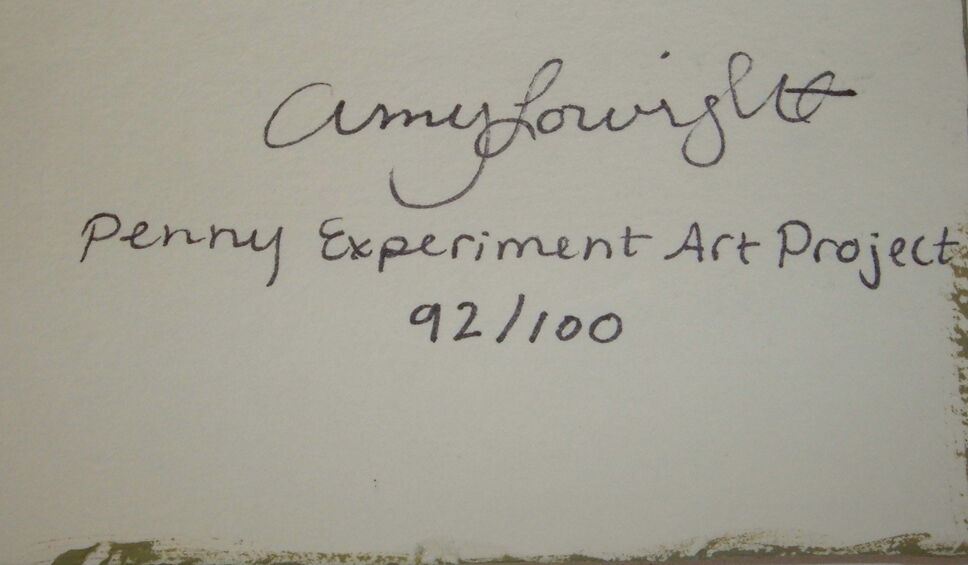 Amy Lowright
Penny Experiment Art Project
92/100